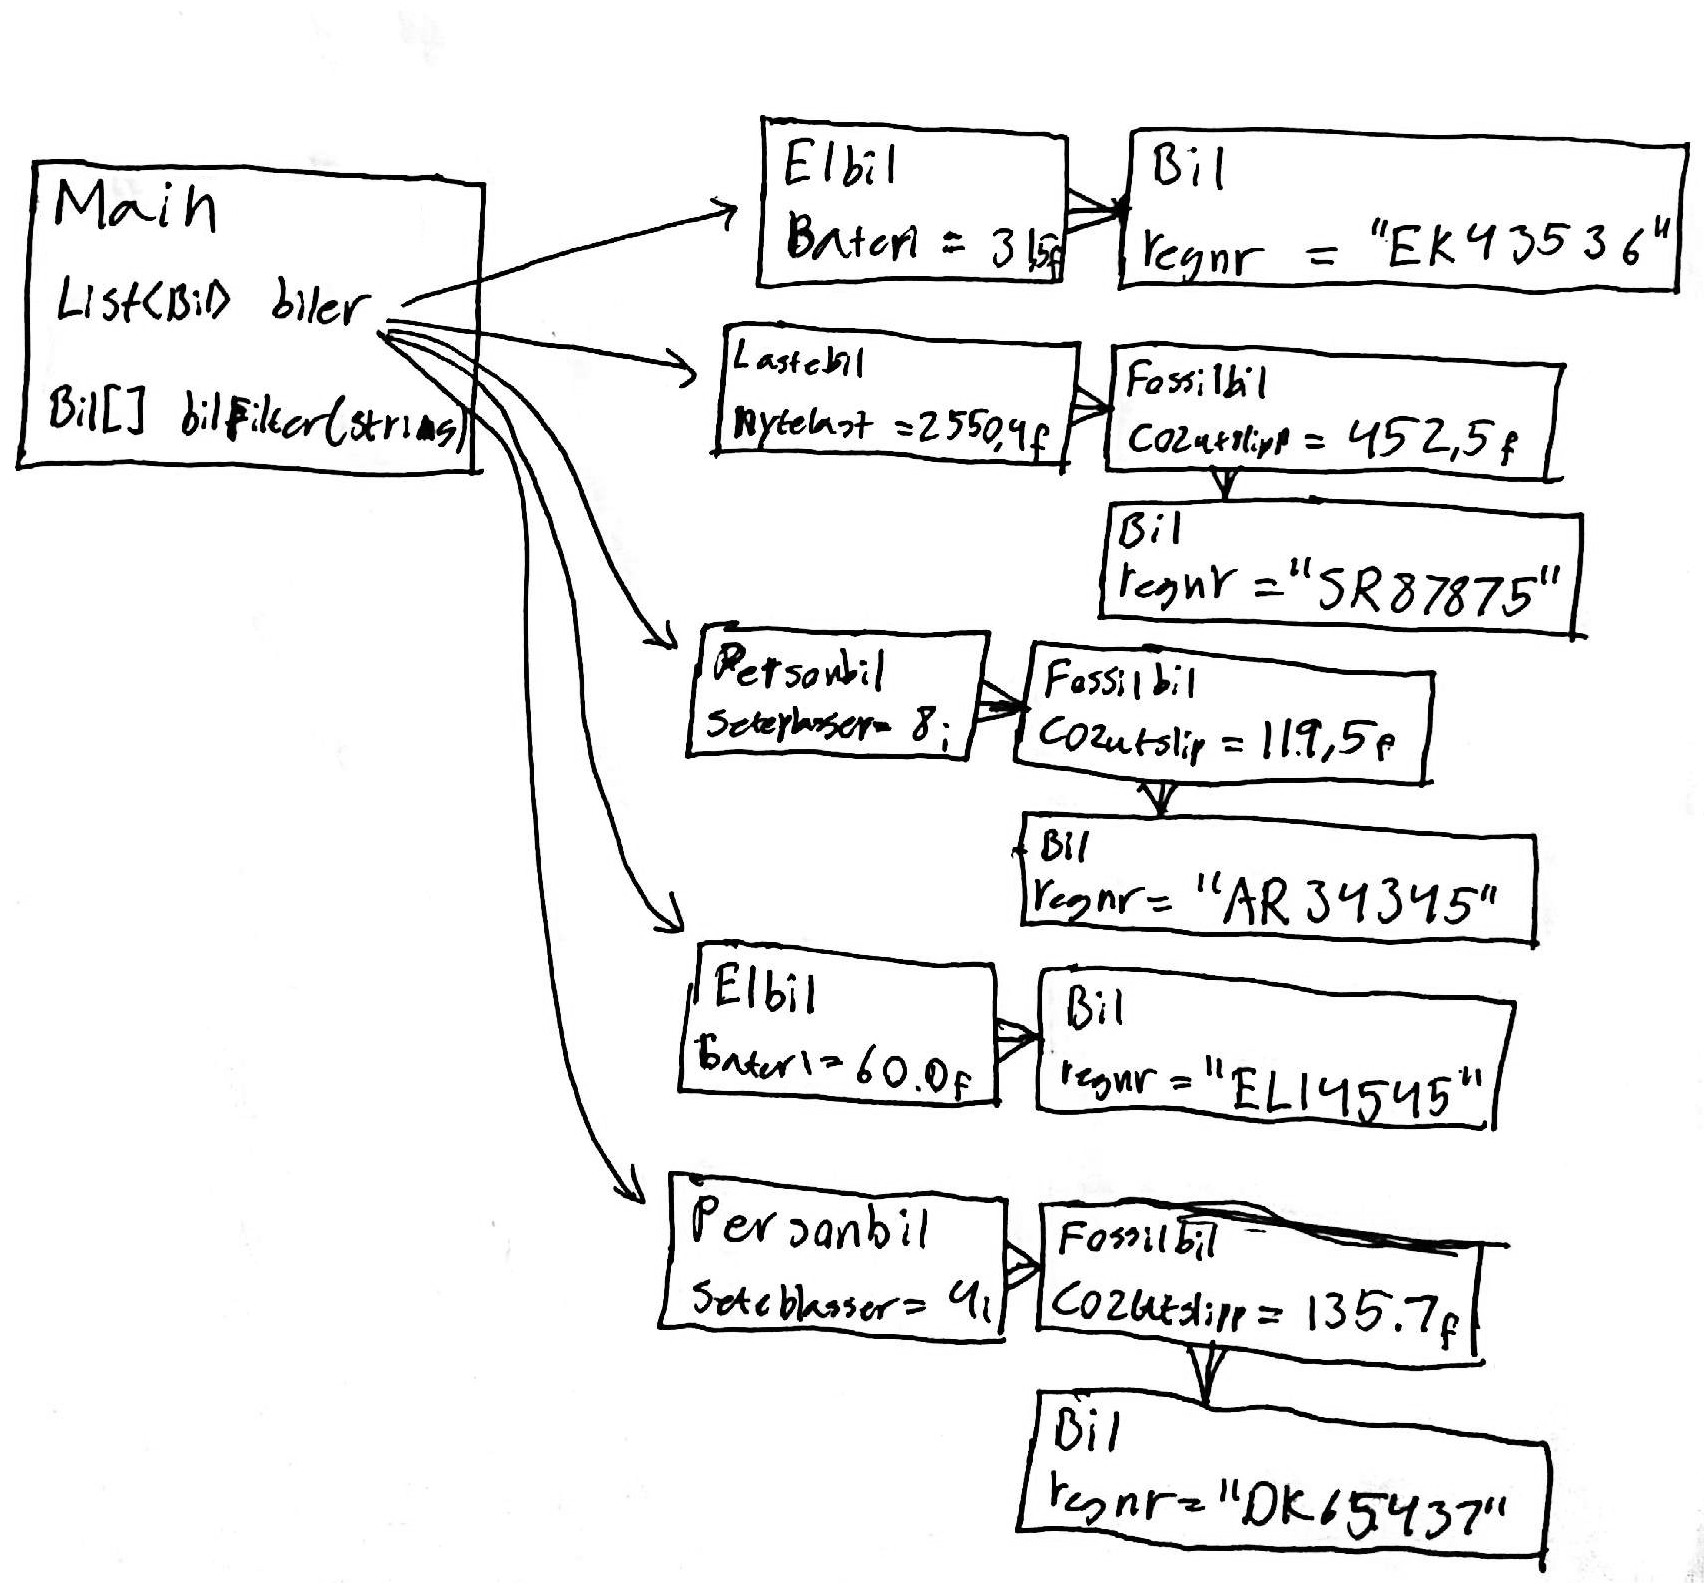 Main
List<Bil> biler
Bil[] bilFilter(string)
Elbil
Bateri = 31,5f
Bil
regnr = "EK43536"
Lastebil
Nytelast = 2550,4f
Fossilbil
CO2utslipp = 452,5f
Bil
regnr = "SR87875"
Personbil
Seteplasser = 8i
Fossilbil
CO2utslip = 119,5f
Bil
regnr = "AR34345"
Elbil
Bateri = 60.0f
Bil
regnr = "EL14545"
Personbil
Seteblasser = 4i
Fossilbil
CO2utslipp = 135.7f
Bil
regnr = "DK65437"